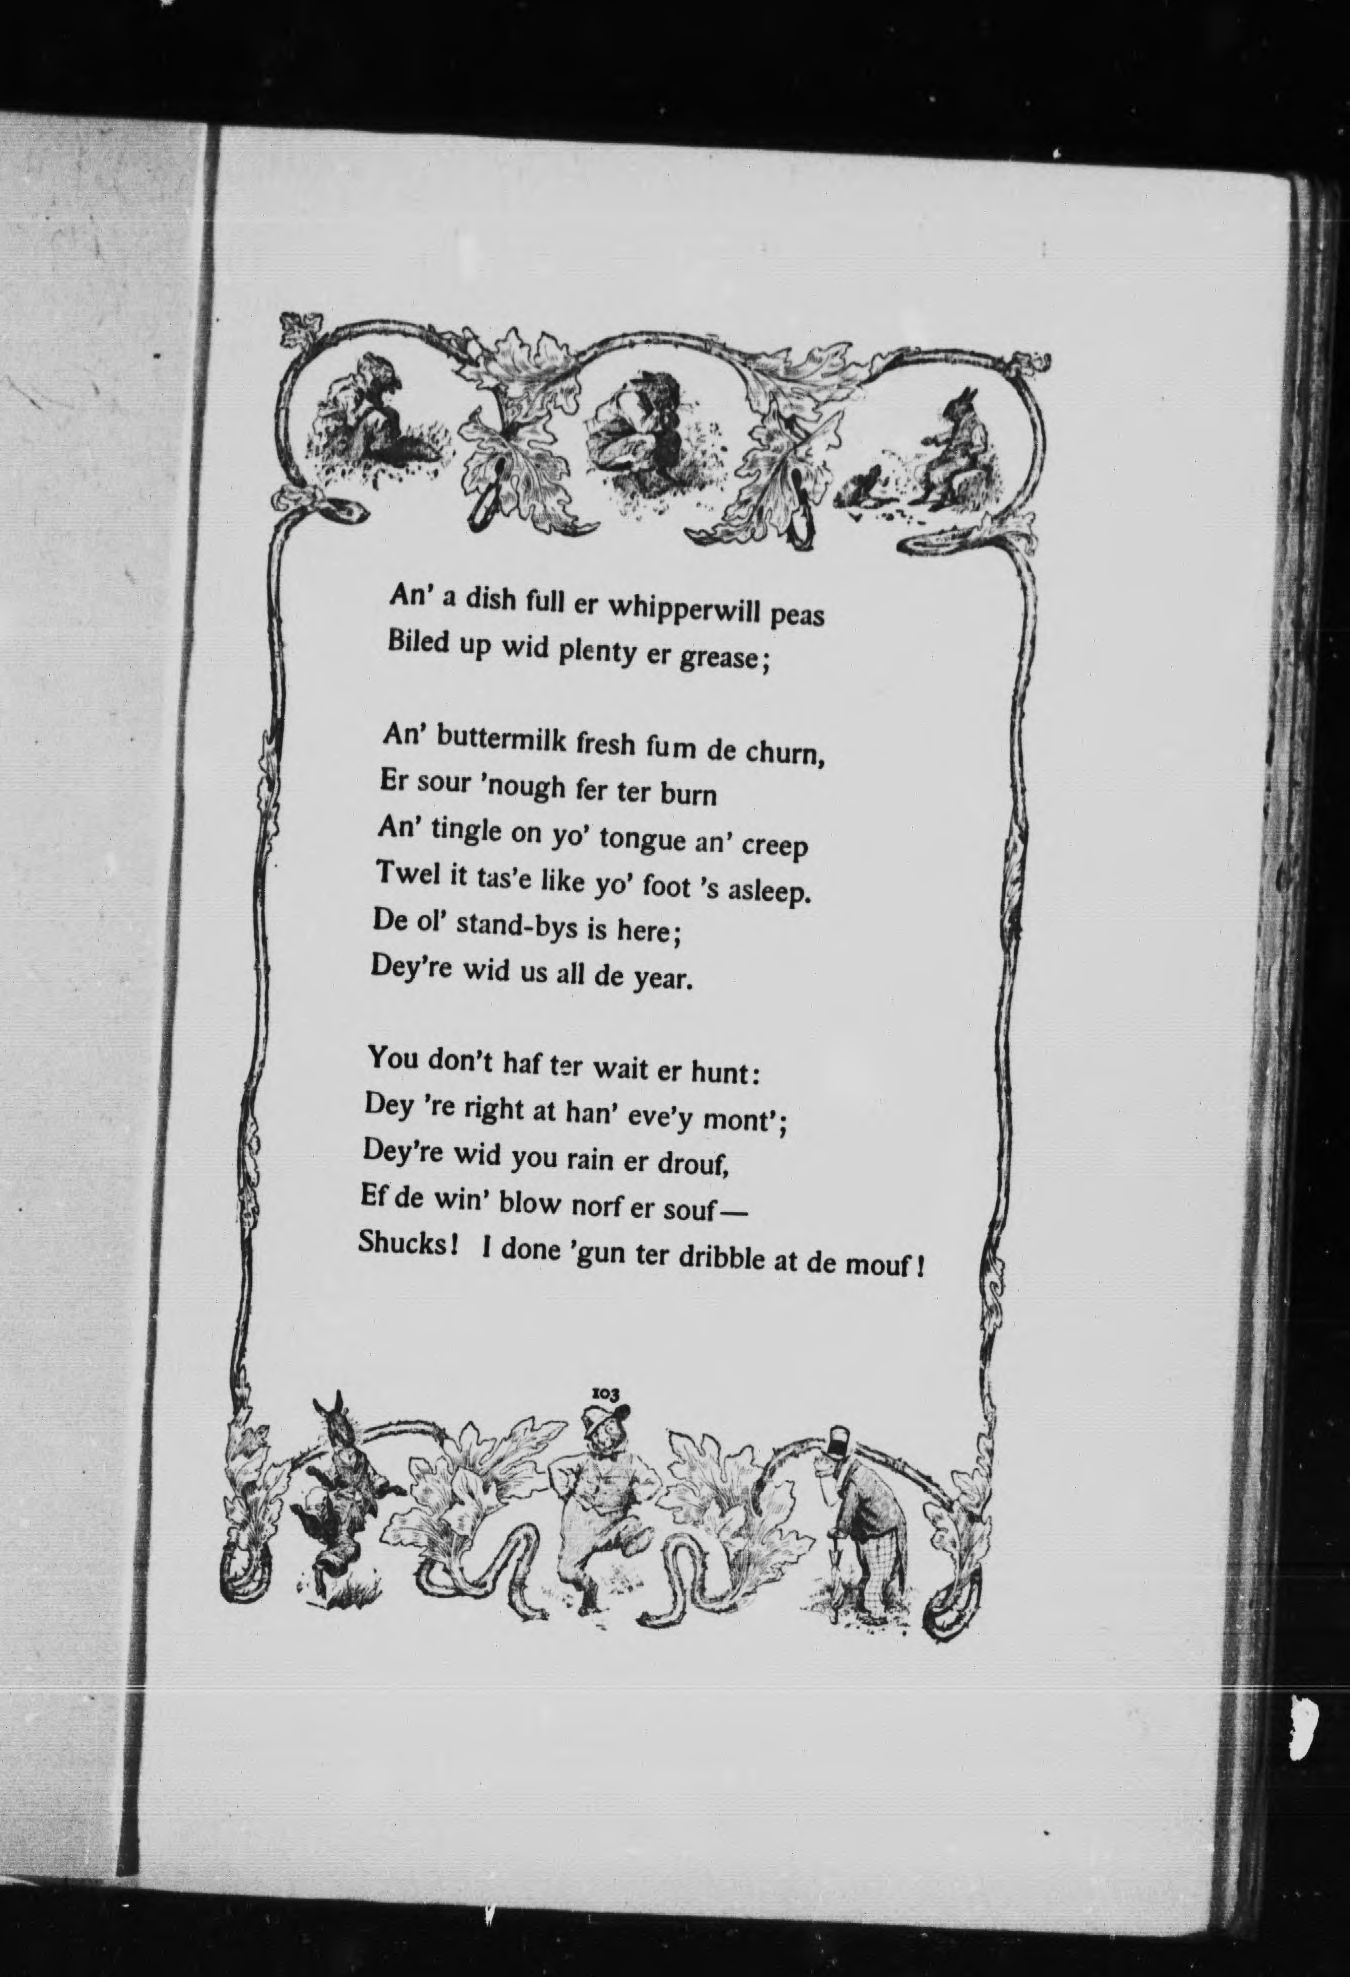 An' a dish full er whipperwill peas
Biled up wid plenty er grease;

An' buttermilk fresh fum de churn,
Er sour 'nough fer ter burn
An' tingle on yo' tongue an' creep
Twel it tas'e like yo' foot 's asleep.
De ol' stand-bys is here;
Dey're wid us all de year.

You don't haf ter wait er hunt:
Dey 're right at han' eve'y mont';
Dey're wid you rain er drouf,
Ef de win' blow norf er souf—
Shucks! I done 'gun ter dribble at de mouf!

103